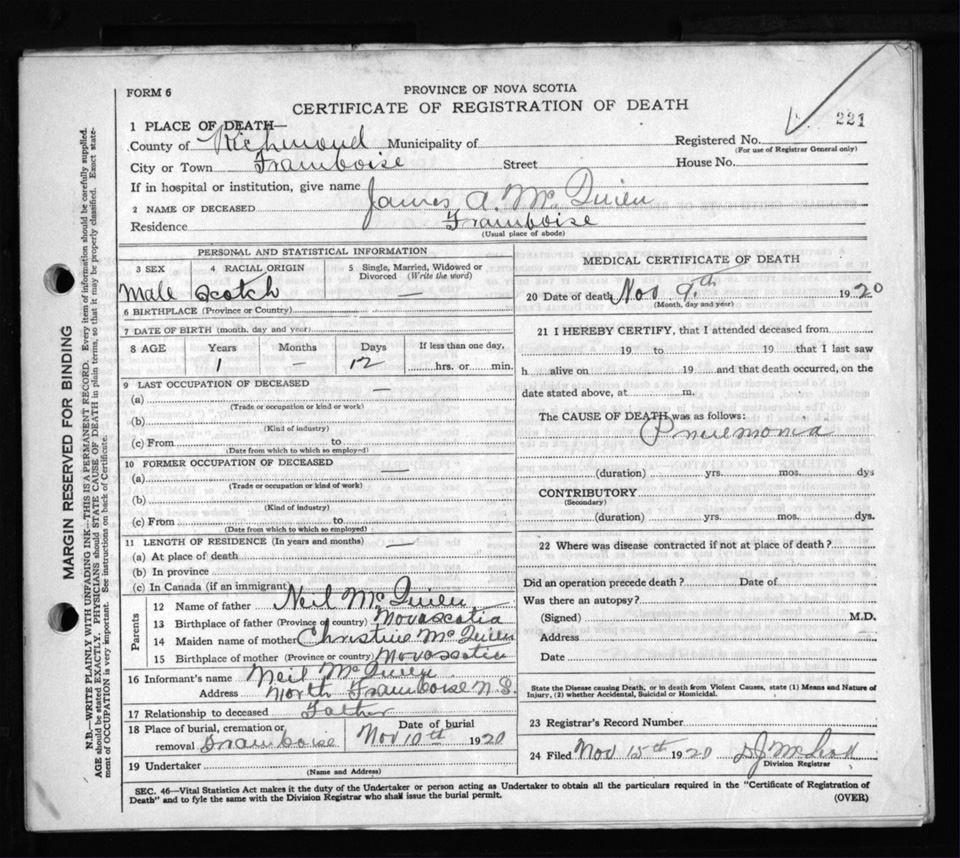 FORM 6
PROVINCE OF NOVA SCOTIA
CERTIFICATE OF REGISTRATION OF DEATH
221
1 PLACE OF DEATH—
County of Richmond Municipality of
Registered No.
(For use of Registrar General only)
City or Town Framboise Street House No.
If in hospital or institution, give name
2 NAME OF DECEASED James A. Mc Quien
Residence Framboise
(Usual place of abode)
PERSONAL AND STATISTICAL INFORMATION
3 SEX 4 RACIAL ORIGIN 5 Single, Married, Widowed or Divorced (Write the word)
Male Scotch —
6 BIRTHPLACE (Province or Country)
7 DATE OF BIRTH (month, day and year)
8 AGE Years Months Days If less than one day,
1 — 12 hrs. or min.
9 LAST OCCUPATION OF DECEASED —
(a)
(Trade or occupation or kind or work)
(b)
(Kind of industry)
(c) From to
(Date from which to which so employed)
10 FORMER OCCUPATION OF DECEASED —
(a)
(Trade or occupation or kind of work)
(b)
(Kind of industry)
(c) From to
(Date from which to which so employed)
11 LENGTH OF RESIDENCE (In years and months) —
(a) At place of death
(b) In province
(c) In Canada (if an immigrant)
Parents
12 Name of father Neil Mc Quien
13 Birthplace of father (Province or country) Novascotia
14 Maiden name of mother Christine Mc Quien
15 Birthplace of mother (Province or country) Novascotia
16 Informant's name Neil Mc Quien
Address North Framboise N.S.
17 Relationship to deceased Father
18 Place of burial, cremation or removal Framboise
Date of burial
Nov 10th 1920
19 Undertaker
(Name and Address)
MEDICAL CERTIFICATE OF DEATH
20 Date of death Nov 9th 1920
(Month, day and year)
21 I HEREBY CERTIFY, that I attended deceased from
19 to 19 that I last saw
h alive on 19 and that death occurred, on the
date stated above, at m.
The CAUSE OF DEATH was as follows:
Pneumonia
(duration) yrs. mos. dys
CONTRIBUTORY
(Secondary)
(duration) yrs. mos. dys.
22 Where was disease contracted if not at place of death?
Did an operation precede death? Date of
Was there an autopsy?
(Signed) M.D.
Address
Date
State the Disease causing Death, or in death from Violent Causes, state (1) Means and Nature of
Injury, (2) whether Accidental, Suicidal or Homicidal.
23 Registrar's Record Number
24 Filed Nov 15th 1920 D J McLeod
Division Registrar
SEC. 46—Vital Statistics Act makes it the duty of the Undertaker or person acting as Undertaker to obtain all the particulars required in the "Certificate of Registration of
Death" and to fyle the same with the Division Registrar who shall issue the burial permit.
(OVER)
MARGIN RESERVED FOR BINDING
N.B.—WRITE PLAINLY WITH UNFADING INK—THIS IS A PERMANENT RECORD. Every item of information should be carefully supplied.
AGE should be stated EXACTLY. PHYSICIANS should STATE CAUSE OF DEATH in plain terms, so that it may be properly classified. Exact state-
ment of OCCUPATION is very important. See instructions on back of Certificate.